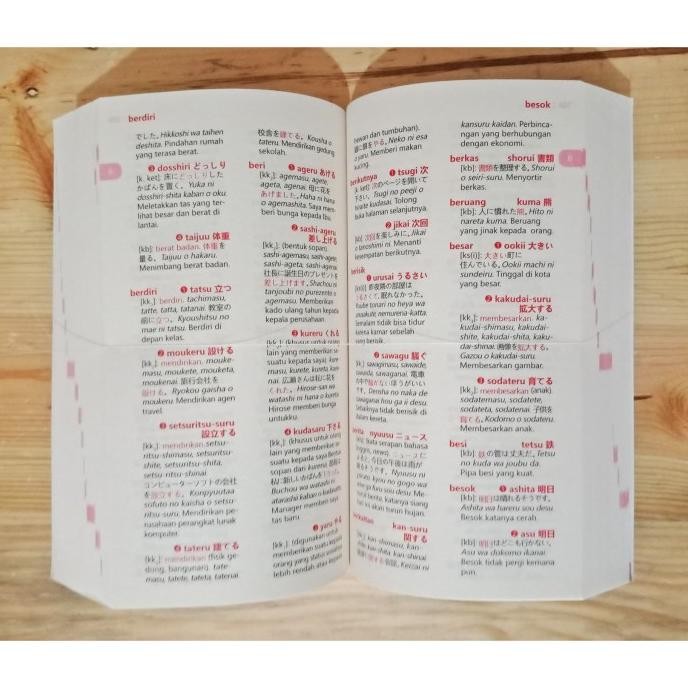 berdiri
でした。Hikkoshi wa taihen
deshita. Pindahan rumah
yang terasa berat.
❸ dosshiri どっしり
[k. ket]: 床にどっしりした
かばんを置く。Yuka ni
dosshiri-shita kaban o oku.
Meletakkan tas yang ter-
lihat besar dan berat di
lantai.
❹ taijuu 体重
[kb]: berat badan. 体重を
量る。Taijuu o hakaru.
Menimbang berat badan.
berdiri ❶ tatsu 立つ
berdiri. tachimasu,
tatte, tatta, tatanai. 教室の
前に立つ。Kyoushitsu no
mae ni tatsu. Berdiri di
depan kelas.
❷ moukeru 設ける
mendirikan. mouke-
masu, moukete, mouketa,
moukenai. 旅行会社を
設ける。Ryokou gaisha o
moukeru. Mendirikan agen
travel.
❸ setsuritsu-suru
設立する
mendirikan. setsu-
ritsu-shimasu, setsuritsu-
shite, setsuritsu-shita,
setsu ritsu-shinai
コンピューターソフトの会社
を設立する。Konpyuutaa
sofuto no kaisha o setsu-
ritsu-suru. Mendirikan pe-
rusahaan perangkat lunak
komputer.
❹ tateru 建てる
mendirikan (fisik ge-
dung, bangunan). tate-
masu, tatete, tateta, tatenai.
校舎を建てる。Kousha o
tateru. Mendirikan gedung
sekolah.
beri ❶ ageru あげる
agemasu, agete,
ageta, agenai. 母に花を
あげました。Haha ni hana
o agemashita. Saya mem-
beri bunga kepada Ibu.
❷ sashi-ageru
差し上げる
(bentuk sopan).
sashi-agemasu, sashi-agete,
sashi-ageta, sashi-agenai.
社長に誕生日のプレゼントを
差し上げます。Shachou ni
tanjoubi no purezento o
agemasu. Memberikan
kado ulang tahun kepada
kepala perusahaan.
❸ kureru くれる
lain yang memberikan se-
suatu kepada saya). kure-
masu, kurete, kureta, kure-
nai. 広瀬さんは私に花を
くれた。Hirose-san wa
watashi ni hana o kureta.
Hirose memberi bunga
untukku.
❹ kudasaru 下さる
(khusus untuk orang
lain yang memberikan se-
suatu kepada saya
Buchou wa watashi ni
atarashii kaban o
Manager memberi saya
tas baru.
❺ yaru やる
(digunakan untuk
memberikan suatu kepada
orang yang status sosialnya
lebih rendah atau kepada
besok
hewan dan tumbuhan).
Neko ni esa
o yaru. Memberi makan
kucing.
berikutnya ❶ tsugi 次
[k. ket]: 次のページを開いて
下さい。Tsugi no peeji o
hiraite kudasai. Tolong
buka halaman selanjutnya.
❷ jikai 次回
[kb]: 次回を楽しみに。Jikai
o tanoshimi ni. Menanti
kesempatan berikutnya.
berisik
❶ urusai うるさい
昨夜隣の部屋は
うるさくて、眠れなかった。
Yuube tonari no heya wa
urusakute, nemurena-katta.
Semalam tidak bisa tidur
karena kamar sebelah
yang berisik.
❷ sawagu 騒ぐ
sawagimasu, sawaide,
sawaida, sawaganai. 電車
の中で騒がないほうがいい
です。Densha no naka de
sawaganai hou ga ii desu.
Sebaiknya tidak berisik di
dalam kereta.
berita nyuusu ニュース
(kata serapan bahasa
Inggris, news). ニュースに
よると、今日の午後は雨が
降るそうです。Nyuusu ni
yoru to, kyou no gogo wa
ame ga furu sou desu. Me-
nurut berita, katanya siang
ini akan turun hujan.
berkaitan kan-suru
関する
kan-shimasu, kan-
shite, kan-shita, kan-shinai
Keizai ni
kansuru kaidan. Perbinca-
ngan yang berhubungan
dengan ekonomi.
berkas shorui 書類
[kb]: 書類を整理する。Shorui
o seiri-suru. Menyortir
berkas.
beruang kuma 熊
[kb]: 人に慣れた熊。Hito ni
nareta kuma. Beruang
yang jinak kepada orang.
besar ❶ ookii 大きい
[ks(i)]: 大きい町に
住んでいる。Ookii machi ni
sundeiru. Tinggal di kota
yang besar.
❷ kakudai-suru
拡大する
membesarkan. ka-
kudai-shimasu, kakudai-
shite, kakudai-shita, kaku-
dai-shinai. 画像を拡大する。
Gazou o kakudai-suru.
Membesarkan gambar.
❸ sodateru 育てる
membesarkan (anak).
sodatemasu, sodatete,
sodateta, sodatenai. 子供を
育てる。Kodomo o sodateru.
Membesarkan anak.
besi tetsu 鉄
[kb]: 鉄の管は丈夫だ。Tetsu
no kuda wa joubu da.
Pipa besi yang kuat.
besok ❶ ashita 明日
[kb]: 明日は晴れるそうです。
Ashita wa hareru sou desu.
Besok katanya cerah.
❷ asu 明日
[kb]: 明日はどこも行かない。
Asu wa dokomo ikanai.
Besok tidak pergi kemana
pun.